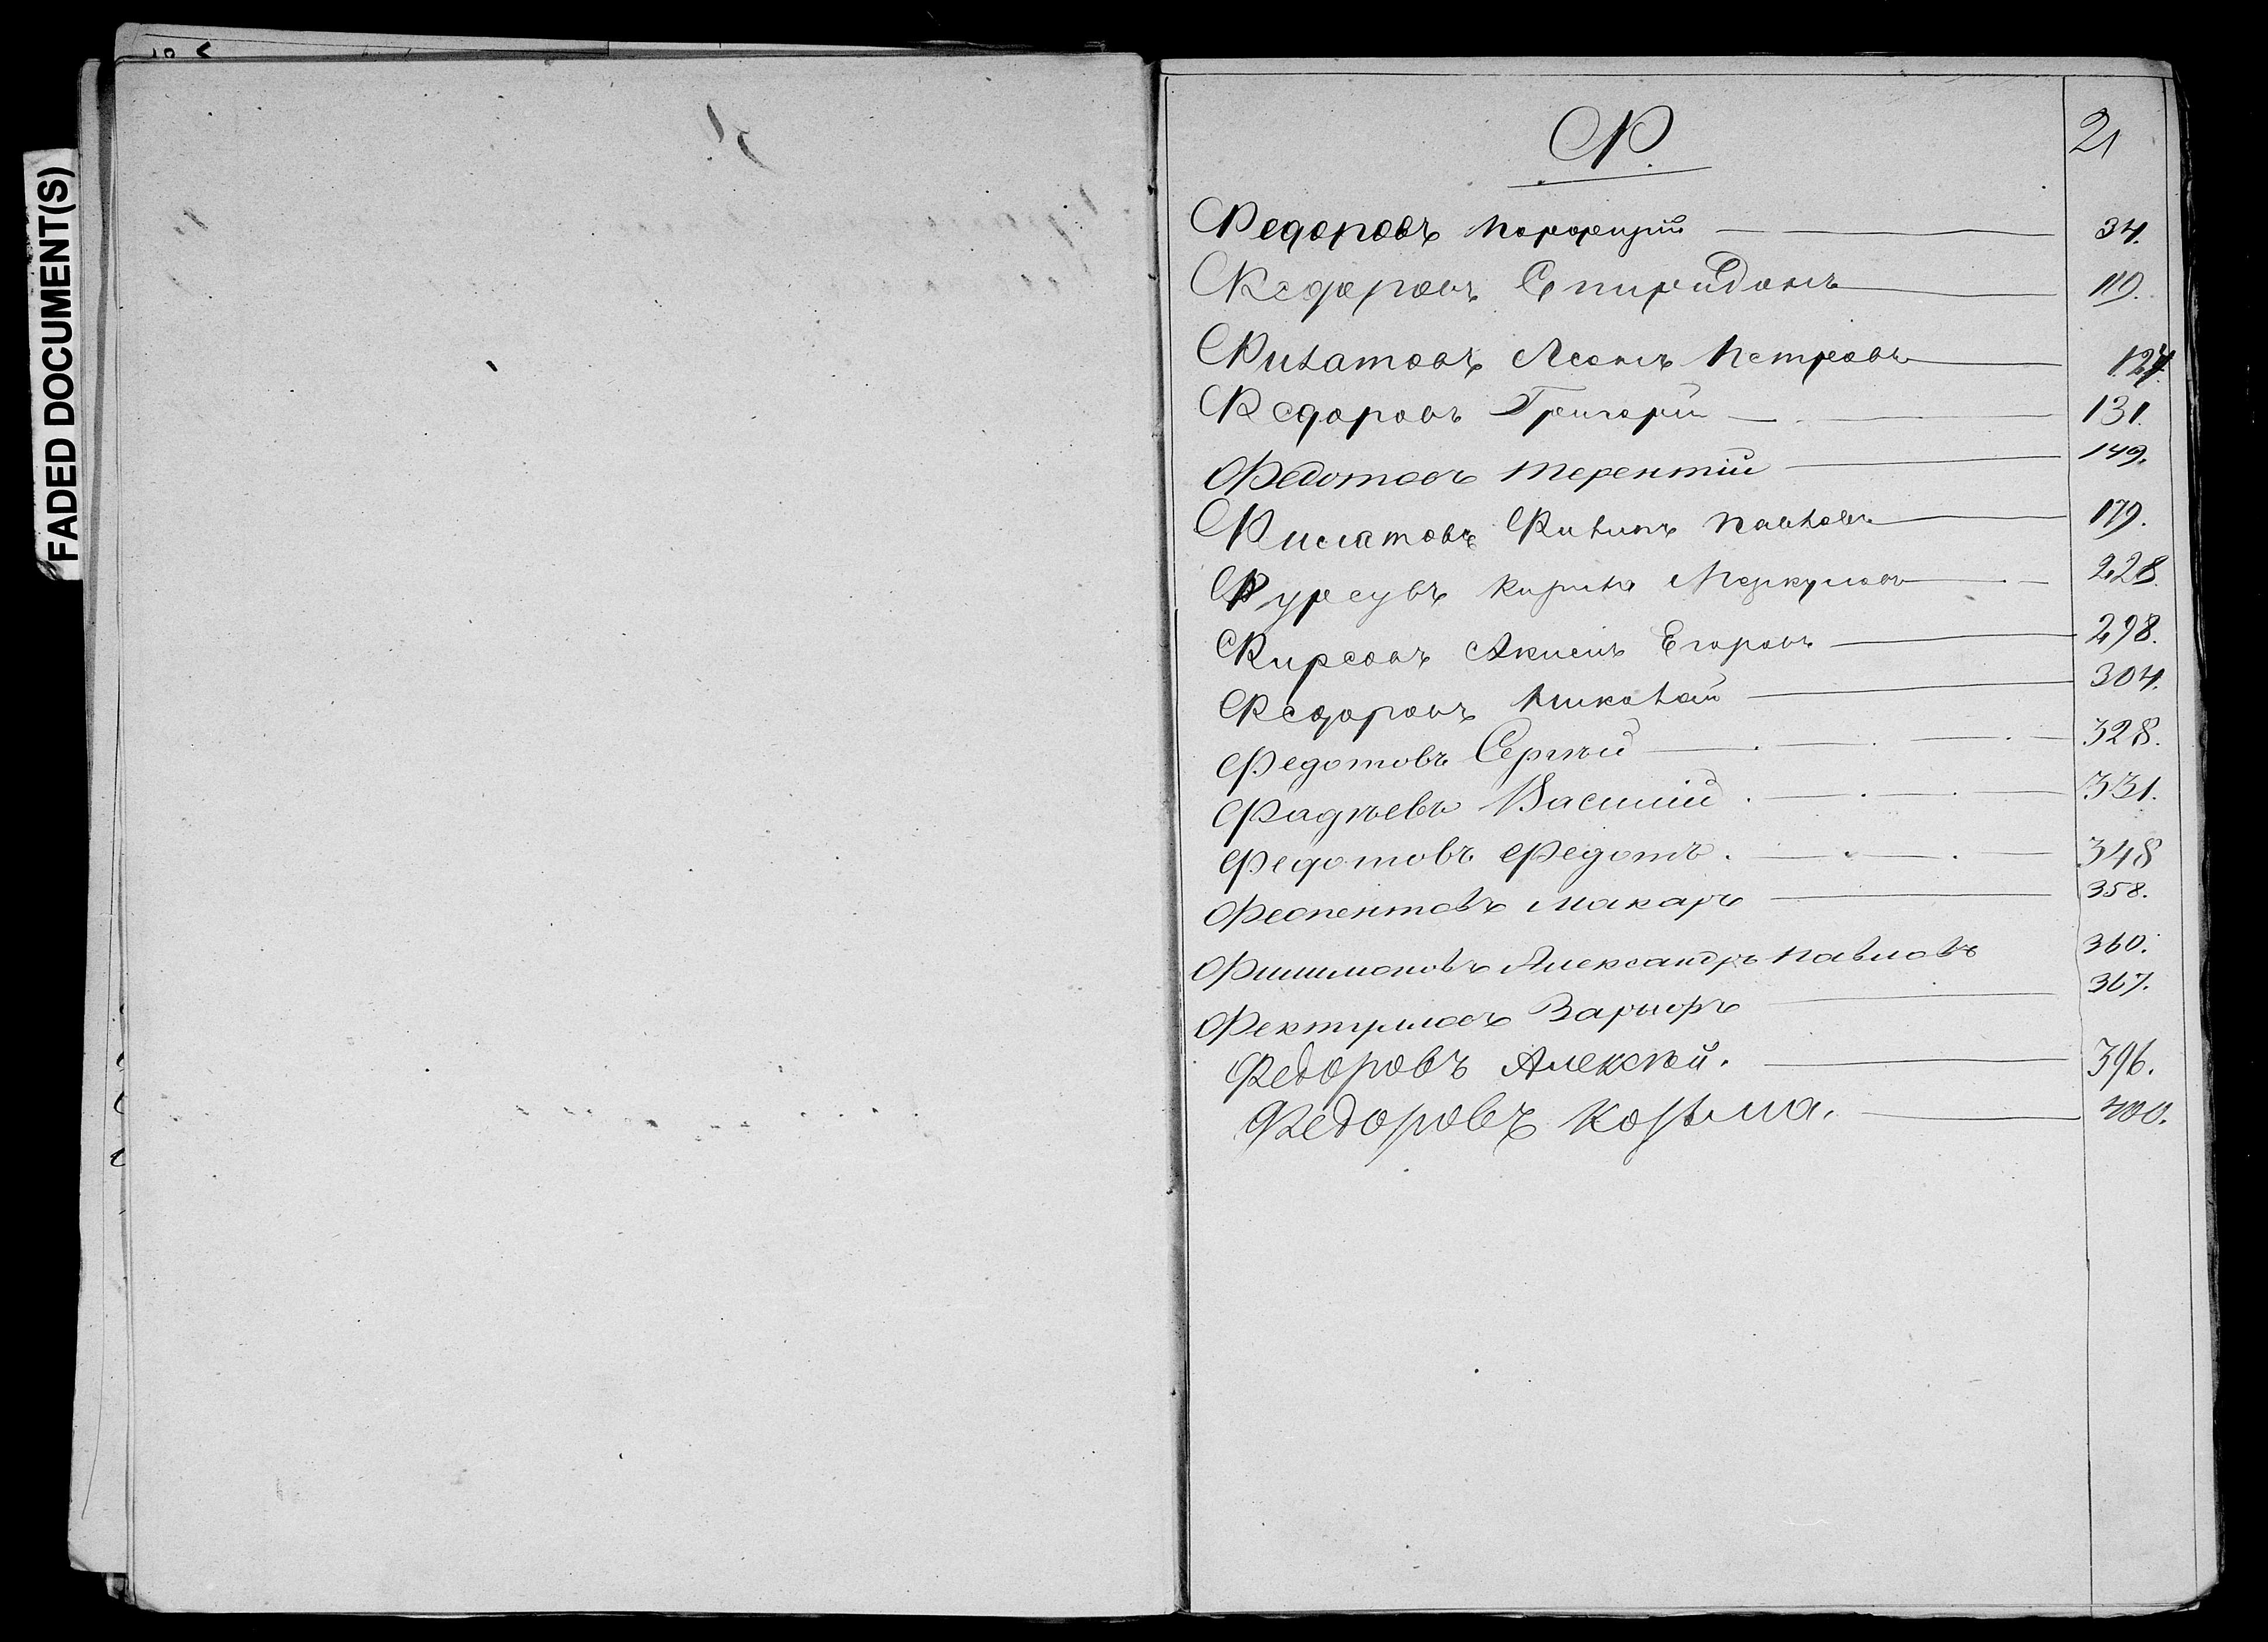 FADED DOCUMENT(S)
Ф.
21
Федоровъ Порфирій 34.
Федоровъ Спиридонъ 119.
Филатовъ Леонъ Петровъ 124.
Федоровъ Григорій 131.
Федотовъ Терентій 149.
Филатовъ Филипъ Павловъ 179.
Фурсувъ Кирила Меркуловъ 228.
Фирсовъ Акимъ Егоровъ 298.
Федоровъ Николай 304.
Федотовъ Сергѣй 328.
Фадѣевъ Василій 331.
Федотовъ Федотъ 348
Феопентовъ Макаръ 358.
Филимоновъ Александръ Павловъ 360.
367.
Федоровъ Алексѣй. 396.
Федоровъ Козьма. 400.